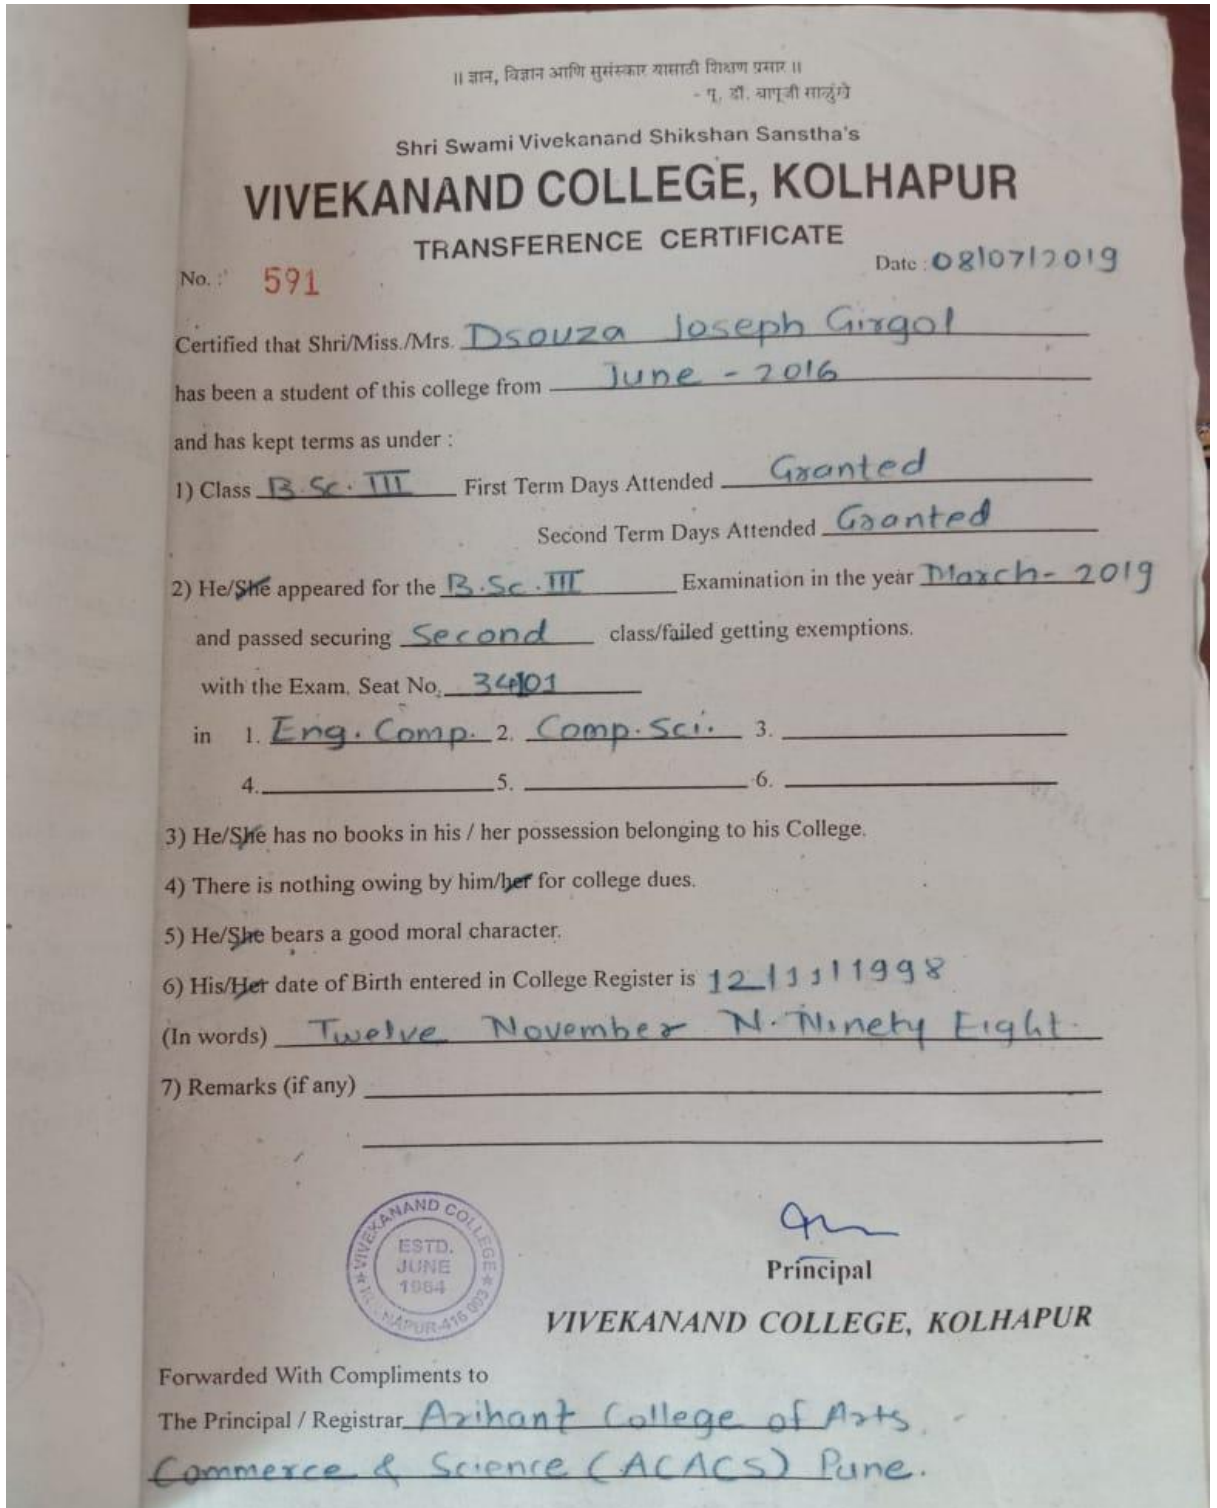 ॥ ज्ञान, विज्ञान आणि सुसंस्कार यासाठी शिक्षण प्रसार ॥
- प. डॉ. बापूजी साळुंखे
Shri Swami Vivekanand Shikshan Sanstha's
VIVEKANAND COLLEGE, KOLHAPUR
TRANSFERENCE CERTIFICATE
No. : 591 Date : 08/07/2019
Certified that Shri/Miss./Mrs. Dsouza Joseph Girgol
has been a student of this college from June - 2016
and has kept terms as under :
1) Class B.Sc. III First Term Days Attended Granted
Second Term Days Attended Granted
2) He/She appeared for the B.Sc. III Examination in the year March - 2019
and passed securing Second class/failed getting exemptions.
with the Exam. Seat No.
in 1. Eng. Comp. 2. Comp. Sci. 3.
4. 5. 6.
3) He/She has no books in his / her possession belonging to his College.
4) There is nothing owing by him/her for college dues.
5) He/She bears a good moral character.
6) His/Her date of Birth entered in College Register is 12/11/1998
(In words) Twelve November N. Ninety Eight.
7) Remarks (if any)
VIVEKANAND COLLEGE
ESTD.
JUNE
1964
APUR-416 003
Principal
VIVEKANAND COLLEGE, KOLHAPUR
Forwarded With Compliments to
The Principal / Registrar Arihant College of Arts
Commerce & Science (ACACS) Pune.